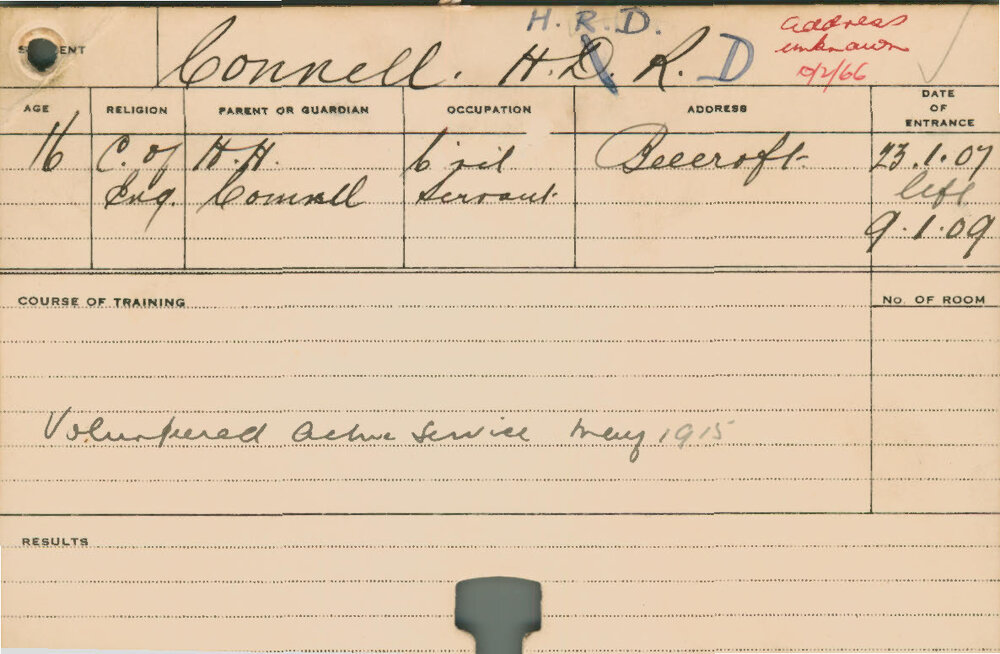 H. R. D.
address
unknown
STUDENT Connell. H. D. R. D
AGE RELIGION PARENT OR GUARDIAN OCCUPATION ADDRESS DATE OF ENTRANCE
16 C. of H. H. Civil Beecroft. 23.1.07
Eng. Connell Servant. left
9.1.09
COURSE OF TRAINING No. OF ROOM
Volunteered Active Service May 1915
RESULTS